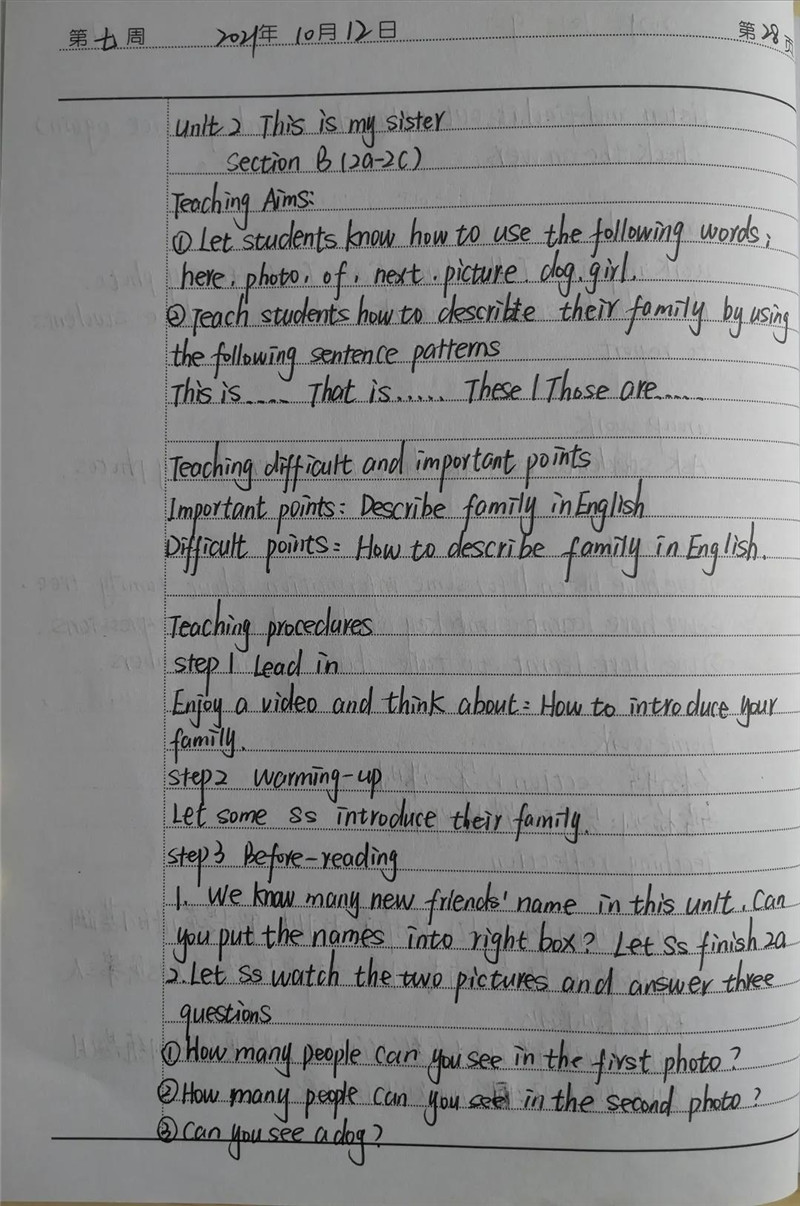 第七周 2021年 10月12日 第28页
Unit 2 This is my sister
Section B (2a-2c)
Teaching Aims:
① Let students know how to use the following words;
here, photo, of, next, picture, dog, girl.
② Teach students how to describte their family by using
the following sentence patterns
This is..... That is...... These / Those are......
Teaching difficult and important points
Important points: Describe family in English
Difficult points: How to describe family in English.
Teaching procedures
step 1 Lead in
Enjoy a video and think about: How to introduce your
family.
Step2 Warming-up
Let some Ss introduce their family.
Step 3 Before-reading
1. We know many new friends' name in this unit. Can
you put the names into right box? Let Ss finish 2a
2. Let Ss watch the two pictures and answer three
questions
① How many people can you see in the first photo?
② How many people can you see in the second photo?
③ Can you see a dog?